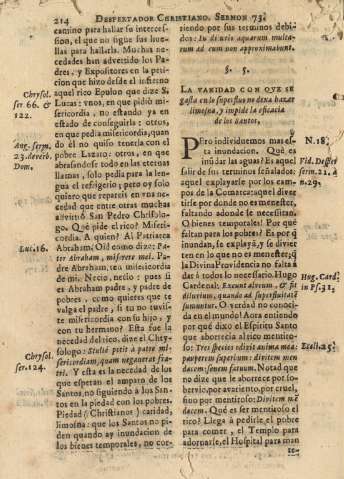 214 DESPERTADOR CHRISTIANO. SERMON 73.
camino para hallar su intercession,
el que no sigue sus huellas
para hallarla. Muchas necedades
han advertido los Padres,
y Expositores en la peticion
que hizo desde el infierno
aquel rico Epulon que dize S.
Lucas: vnos, en que pidiò misericordia,
no estando ya en
estado de conseguirla: otros,
en que pedia misericordia, quando
èl no quiso tenerla con el
pobre Lazaro: otros, en que
abrasandose todo en las eternas
llamas, solo pedia para la lengua
el refrigerio; pero oy solo
quiero que repareis en vna necedad
que entre otras muchas
advirtiò San Pedro Chrisologo.
Què pide el rico? Misericordia.
A quien? Al Patriarca
Abraham: Oìd como dize: Pater
Abraham, miserere mei. Padre
Abraham, ten misericordia
de mi. Necio, necio: pues si
es Abraham padre, y padre de
pobres, como quieres que te
valga el padre, si tu no tuviste
misericordia con su hijo, y
con tu hermano? Esta fue la
necedad del rico, dize el Chrysologo:
Stultè petit à patre misericordiam,
quam negaverat fratri.
Y esta es la necedad de los
que esperan el amparo de los
Santos, no siguiendo à los Santos
en la piedad con los pobres.
Piedad (ò Christianos) caridad,
limosna: que los Santos no piden
quando ay inundacion de
bienes temporales, no
Chrysol.
ser. 66. &
122.
Aug. serm.
23. de verb.
Dom.
Luc. 16.
Chrysol.
ser. 124.
riendo por sus terminos debidos:
In diluvio aquarum multarum
ad eum non approximabunt.
§. 5.
LA VANIDAD CON QUE SE
gasta en lo superfluo no dexa baxar
limosna, y impide la eficacia
de los Santos.
PEro individuemos mas esta
inundacion. Què es
inundar las aguas? Es aquel
salir de sus terminos señalados:
aquel explayarse por los campos
de la Comarca: aquel divertirse
por donde no es menester,
faltando adonde se necessitan.
O bienes temporales! Por què
faltan para los pobres? Es por q̃
inundan, se explayã, y se divierten
en lo que no es menester; q̃
la Divina Providencia no falta à
dar à todos lo necessario. Hugo
Cardenal: Exeunt alveum, & fit
diluvium, quando ad superfluitatẽ
sumuntur. O verdad no conocida
en el mundo! Aora entiendo
por què dixo el Espiritu Santo
que aborrecia al rico mentiroso:
Tres species odivit anima mea:
pauperem superbum: divitem mendacem:
senem fatuum. Notad que
no dize que le aborrece por soberbio,
por avariento, por cruel,
sino por mentiroso: Divitem mẽdacem.
Què es ser mentiroso el
rico? Llega à pedirle, el pobre
para comer, el Templo para
adornarse, el Hospital para
N. 18.
Vid. Despert.
serm. 22. à
n. 29.
Hug. Card.
in Ps. 31.
Eccli. 25.